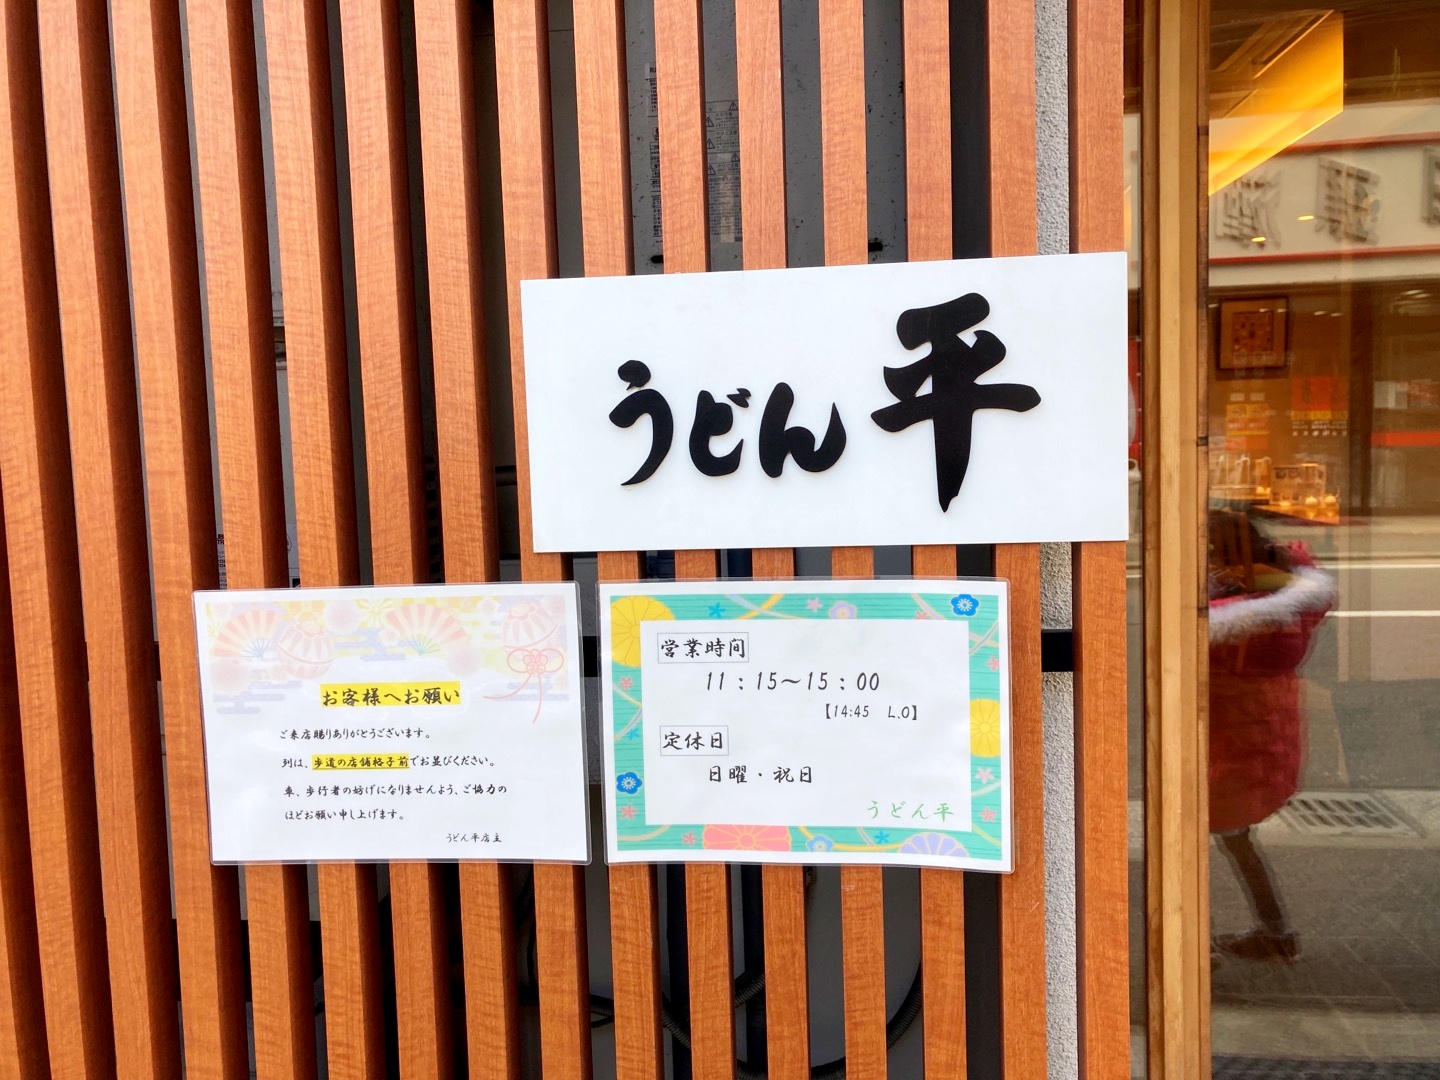 うどん 平
お客様へお願い
ご来店賜りありがとうございます。
列は、歩道の店舗格子前でお並びください。
車、歩行者の妨げになりませんよう、ご協力の
ほどお願い申し上げます。
うどん平店主
営業時間
11:15～15:00
【14:45 L.O】
定休日
日曜・祝日
うどん平